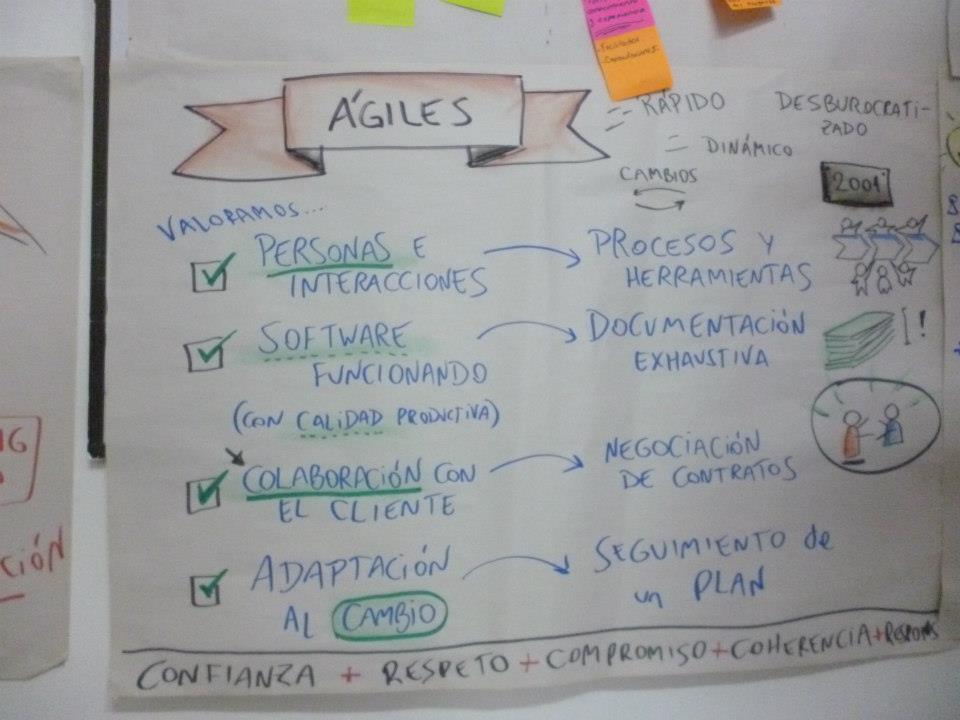 ÁGILES
RÁPIDO
DESBUROCRATI-
ZADO
DINÁMICO
CAMBIOS
2001
VALORAMOS...
PERSONAS E
INTERACCIONES
PROCESOS Y
HERRAMIENTAS
SOFTWARE
FUNCIONANDO
(CON CALIDAD PRODUCTIVA)
DOCUMENTACIÓN
EXHAUSTIVA
!
COLABORACIÓN CON
EL CLIENTE
NEGOCIACIÓN
DE CONTRATOS
ADAPTACIÓN
AL CAMBIO
SEGUIMIENTO de
un PLAN
CONFIANZA + RESPETO + COMPROMISO + COHERENCIA + RESPONS
CIÓN